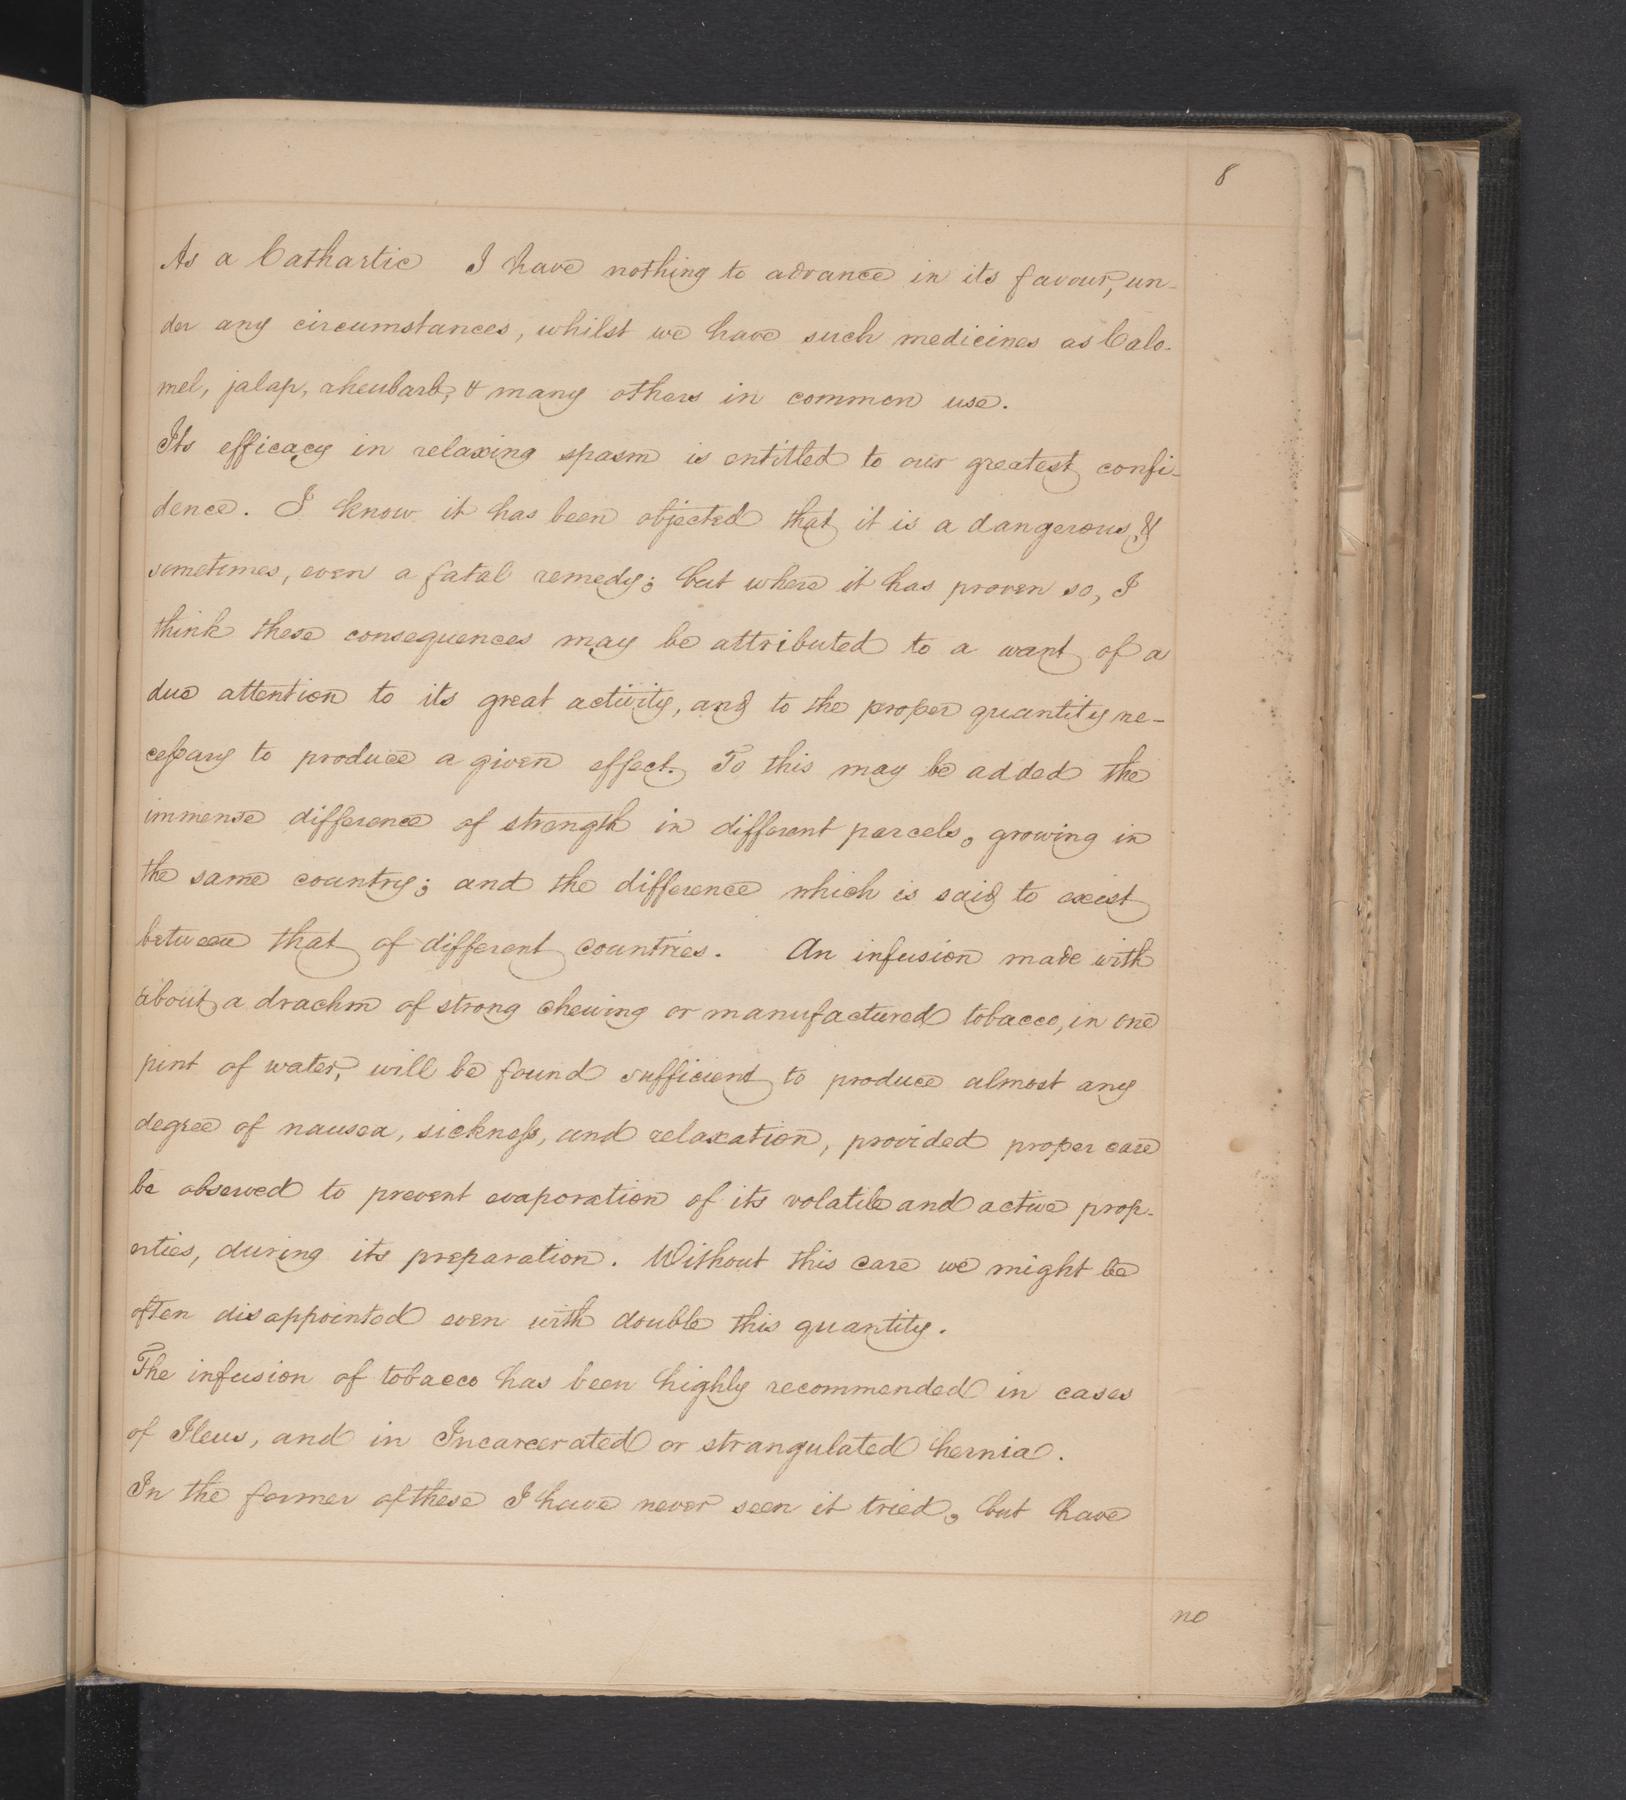 8
As a Cathartic I have nothing to advance in its favour, un-
der any circumstances, whilst we have such medicines as Calo-
mel, jalap, rheubarb, & many others in common use.
Its efficacy in relaxing spasm is entitled to our greatest confi-
dence. I know it has been objected that it is a dangerous, &
sometimes, even a fatal remedy; but where it has proven so, I
think these consequences may be attributed to a want of a
due attention to its great activity, and to the proper quantity ne-
cessary to produce a given effect. To this may be added the
immense difference of strength in different parcels, growing in
the same country; and the difference which is said to exist
between that of different countries. An infusion made with
about a drachm of strong chewing or manufactured tobacco, in one
pint of water, will be found sufficient to produce almost any
degree of nausea, sickness, and relaxation, provided proper care
be observed to prevent evaporation of its volatile and active prop-
erties, during its preparation. Without this care we might be
often disappointed even with double this quantity.
The infusion of tobacco has been highly recommended in cases
of Ileus, and in Incarcerated or strangulated hernia.
In the former of these I have never seen it tried, but have
no